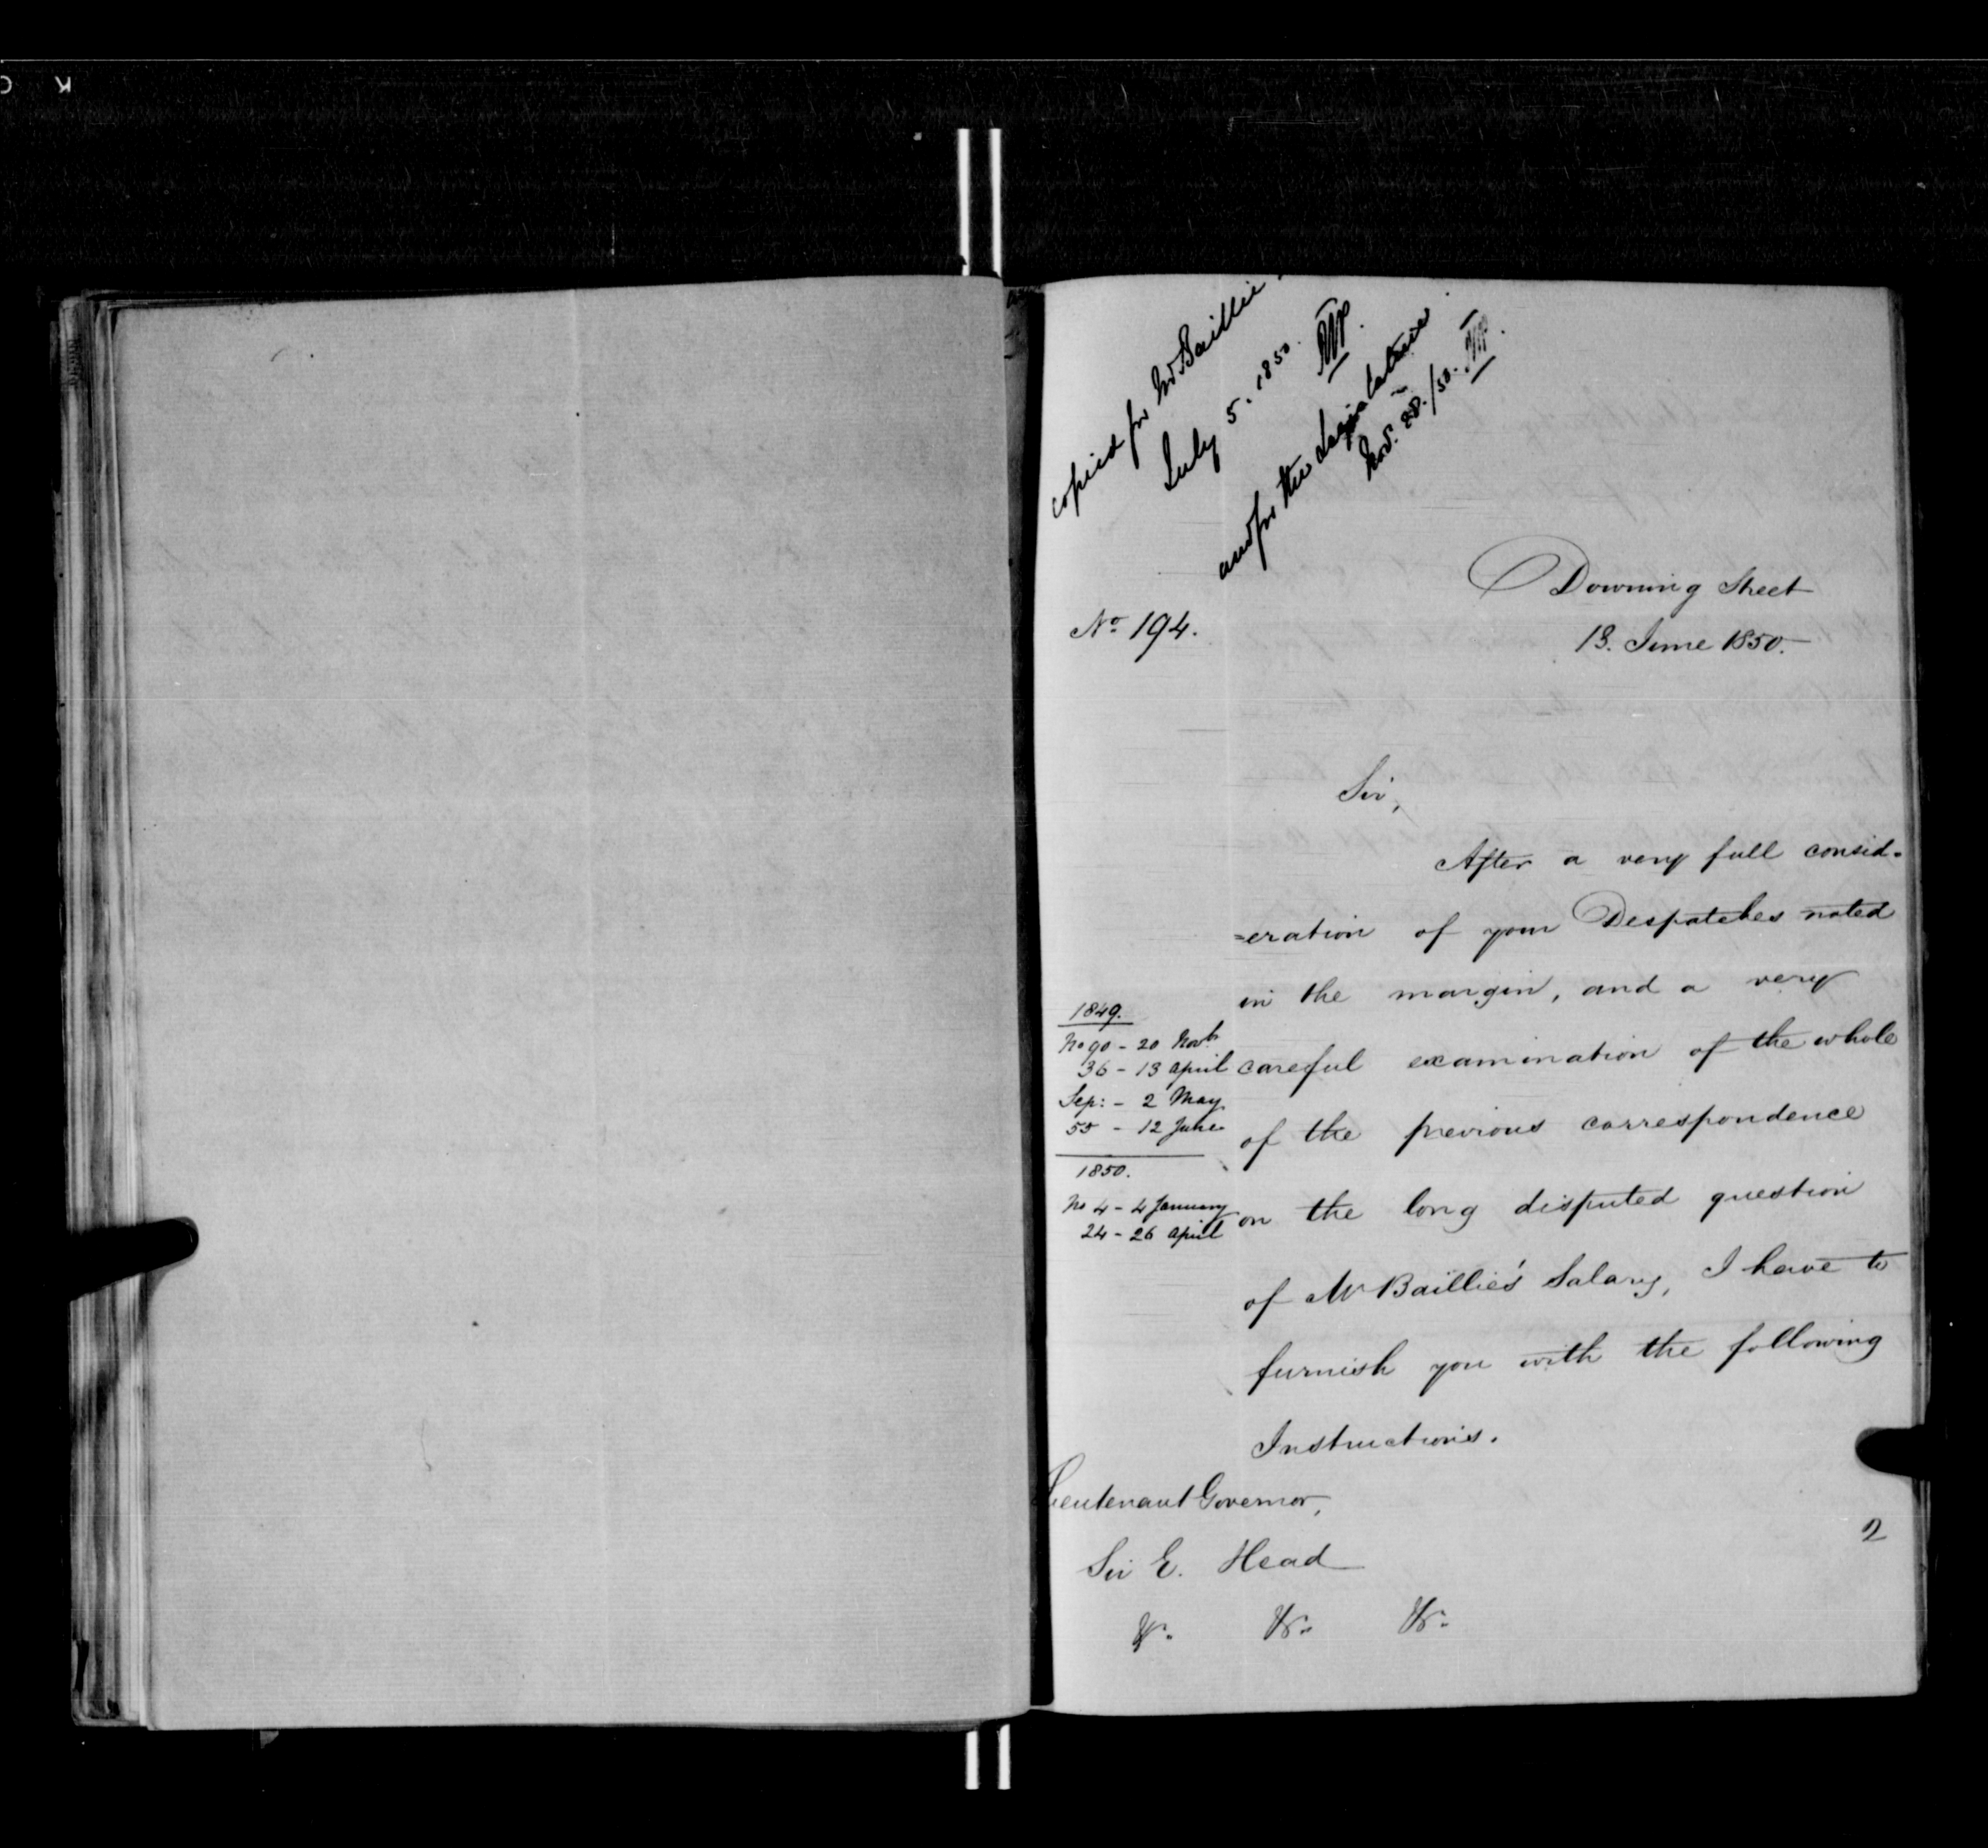 copied for Mr Baillie
July 5. 1850.
and for the Legislature
Nov. 28./50.
No 194.
Downing Street
13. June 1850.
Sir,
After a very full consid-
=eration of your Despatches noted
in the margin, and a very
careful examination of the whole
of the previous correspondence
on the long disputed question
of Mr Baillie's Salary, I have to
furnish you with the following
Instructions.
1849.
No 90 - 20 Novbr
36 - 13 April
Sep: - 2 May
55 - 12 June
1850.
No 4 - 4 January
24 - 26 April
Lieutenant Governor,
Sir E. Head
&c. &c. &c.
2